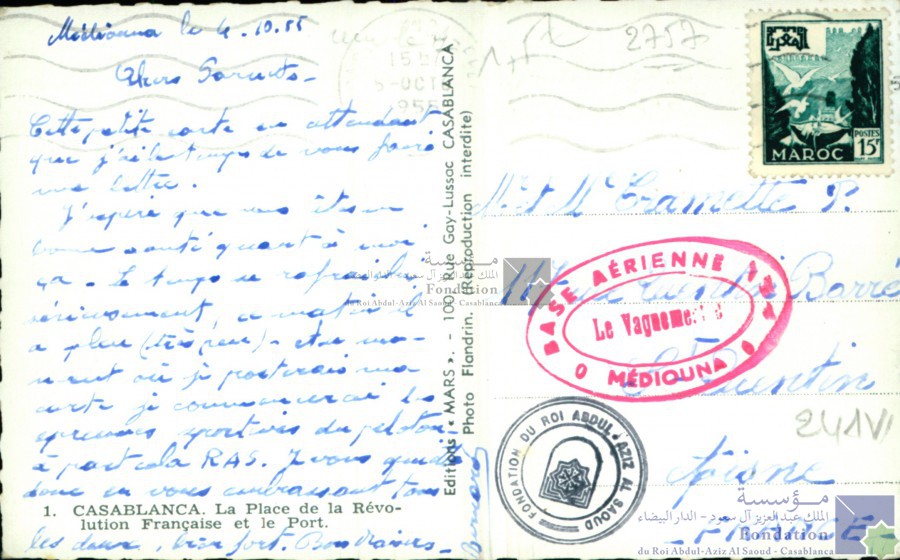 Médiouna le 4.10.55
Chers Parents
Cette petite carte en attendant
que j'ai le temps de vous faire
une lettre.
J'espère que vous êtes en
bonne santé quant à moi
ça . Le temps se rafraîchit
sérieusement, ce matin il
a plu (très peu). et au mo-
ment où je posterais ma
carte je commencerai les
épreuves sportives du peloton
à part cela RAS. Je vous quitte
donc en vous embrassant tous
les deux, bien fort. Bons Baisers
Bernard
1. CASABLANCA. La Place de la Révo-
lution Française et le Port.
Editions « MARS ». - 100, Rue Gay-Lussac CASABLANCA
Photo Flandrin. (Reproduction interdite)
2757
المغرب
POSTES
15F
MAROC
15
5-OCT
1955
Mr et Me Tramette P.
Barré
St Quentin
Aisne
FRANCE
BASE AÉRIENNE
Le Vaguemestre
MÉDIOUNA
241VI
FONDATION DU ROI ABDUL AZIZ AL SAOUD
مؤسسة
الملك عبد العزيز آل سعود - الدار البيضاء
Fondation
du Roi Abdul-Aziz Al Saoud - Casablanca
مؤسسة
الملك عبد العزيز آل سعود - الدار البيضاء
Fondation
du Roi Abdul-Aziz Al Saoud - Casablanca